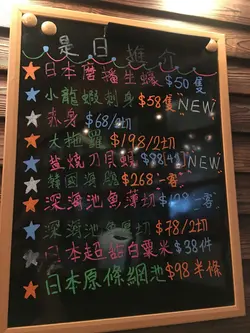 是日推介
日本廣播生蠔$50隻
小龍蝦刺身$58隻NEW
赤身$68/2切
大拖羅$198/2切
鹽燒刀貝蟶$88(4)NEW
韓國海膽$268一客
深海池魚薄切 一客
深海池魚厚切$48/2切
日本超 白粟米$38件
日本原條網池$98半條